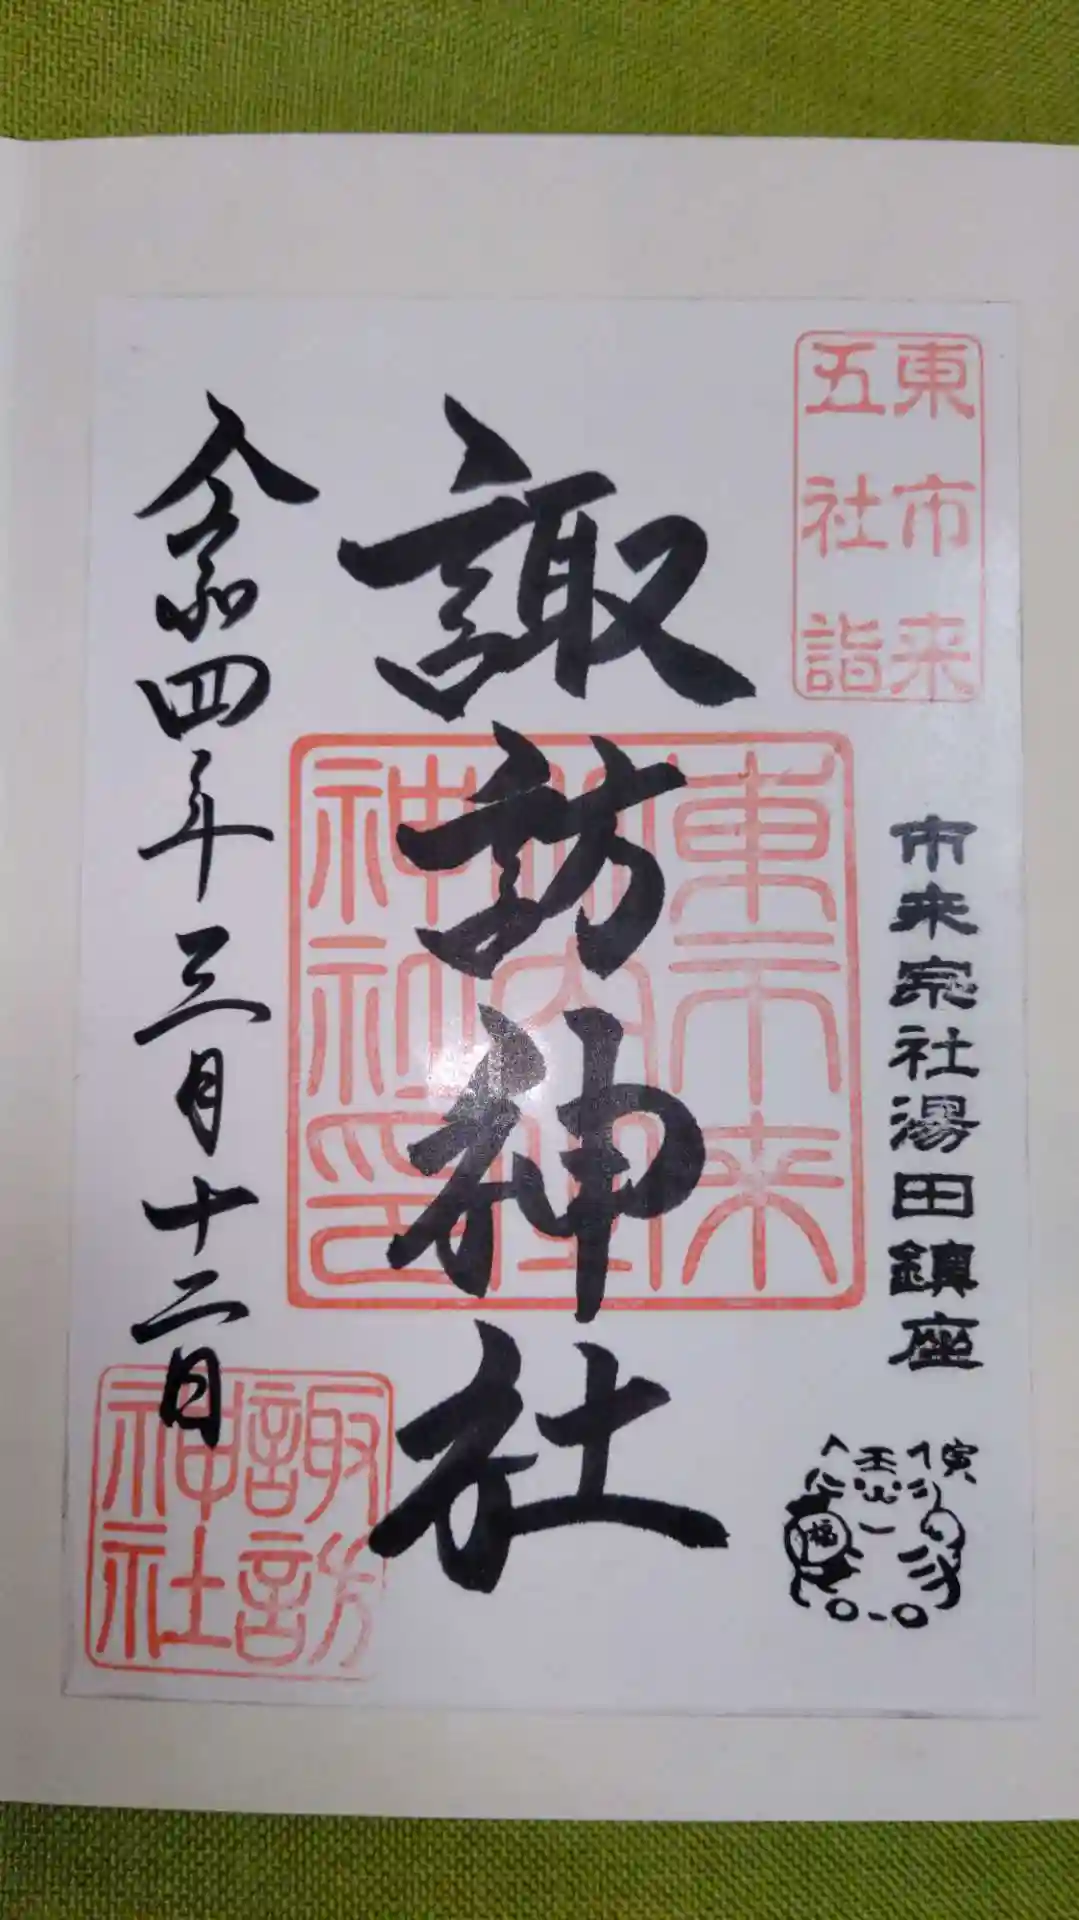 東市来
五社詣
市来宗社湯田鎮座
寅
福
諏訪神社
東市来
神社印
令和四年三月十二日
諏訪
神社